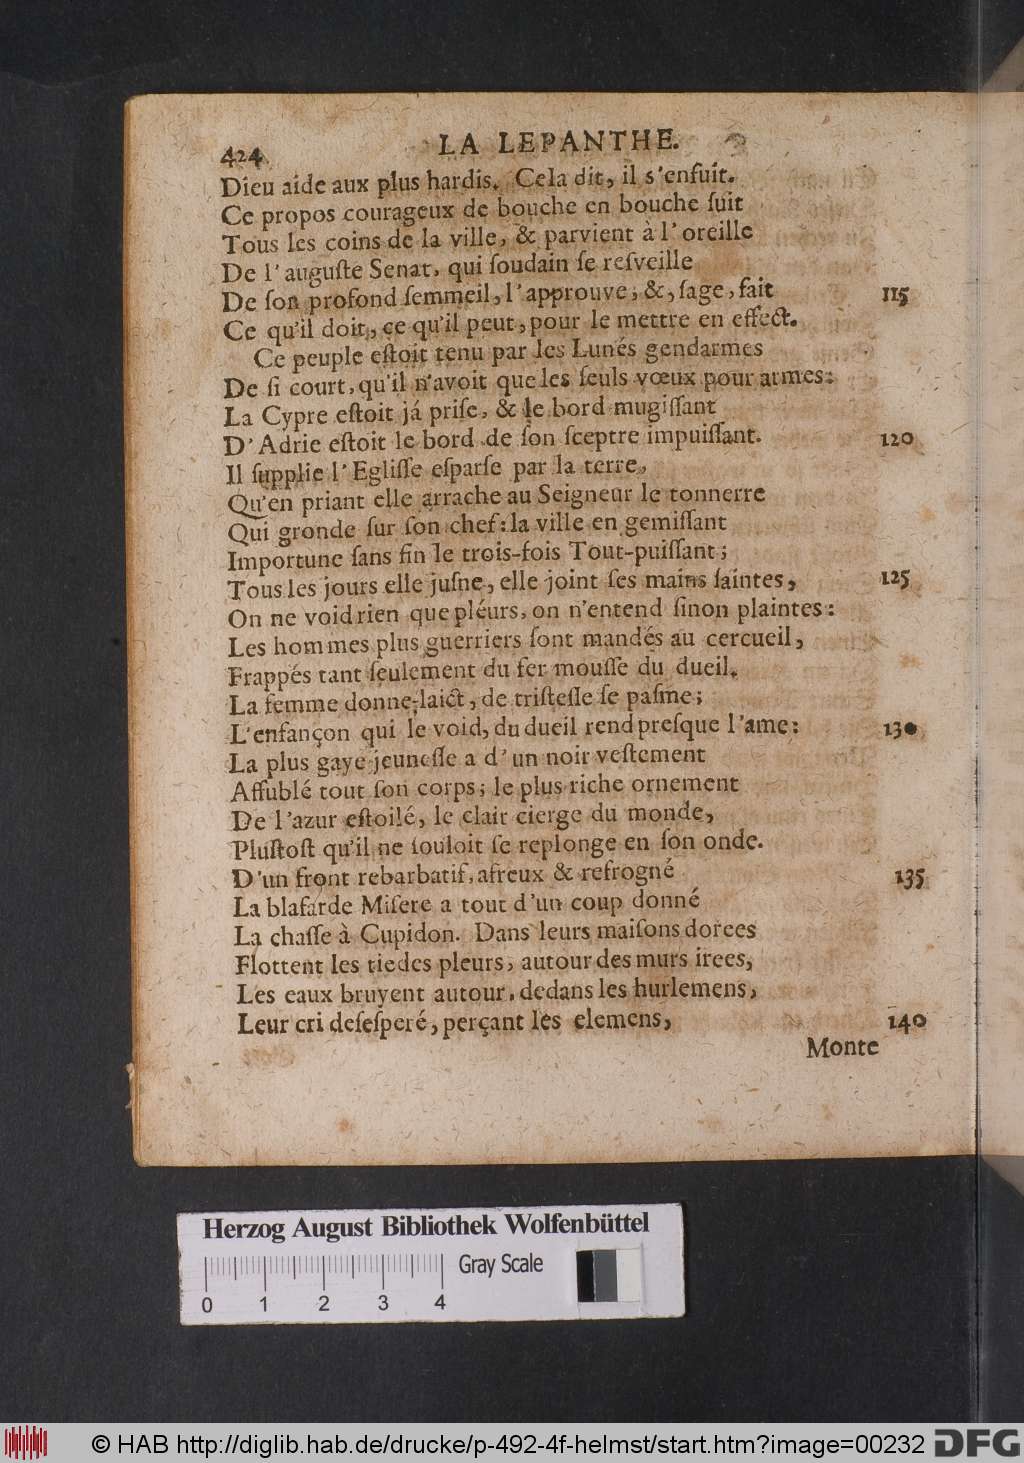 424 LA LEPANTHE.
Dieu aide aux plus hardis. Cela dit, il s'enfuit.
Ce propos courageux de bouche en bouche ſuit
Tous les coins de la ville, & parvient à l'oreille
De l'auguſte Senat, qui ſoudain ſe reſveille
De ſon profond ſemmeil, l'approuve; &, ſage, fait 115
Ce qu'il doit, ce qu'il peut, pour le mettre en effect.
Ce peuple eſtoit tenu par les Lunés gendarmes
De ſi court, qu'il n'avoit que les ſeuls vœux pour armes:
La Cypre eſtoit já priſe, & le bord mugiſſant
D'Adrie eſtoit le bord de ſon ſceptre impuiſſant. 120
Il ſupplie l'Egliſſe eſparſe par la terre,
Qu'en priant elle arrache au Seigneur le tonnerre
Qui gronde ſur ſon chef: la ville en gemiſſant
Importune ſans fin le trois-fois Tout-puiſſant;
Tous les jours elle juſne, elle joint ſes mains ſaintes, 125
On ne void rien que pléurs, on n'entend ſinon plaintes:
Les hommes plus guerriers ſont mandés au cercueil,
Frappés tant ſeulement du fer mouſſe du dueil.
La femme donne-laict, de triſteſſe ſe paſme;
L'enfançon qui le void, du dueil rend preſque l'ame: 130
La plus gaye jeuneſſe a d'un noir veſtement
Affublé tout ſon corps; le plus riche ornement
De l'azur eſtoilé, le clair cierge du monde,
Pluſtoſt qu'il ne ſouloit ſe replonge en ſon onde.
D'un front rebarbatif, afreux & refrogné 135
La blafarde Miſere a tout d'un coup donné
La chaſſe à Cupidon. Dans leurs maiſons dorees
Flottent les tiedes pleurs, autour des murs irees,
Les eaux bruyent autour, dedans les hurlemens,
Leur cri deſeſperé, perçant les elemens, 140
Monte
Herzog August Bibliothek Wolfenbüttel
Gray Scale
0 1 2 3 4
© HAB http://diglib.hab.de/drucke/p-492-4f-helmst/start.htm?image=00232 DFG